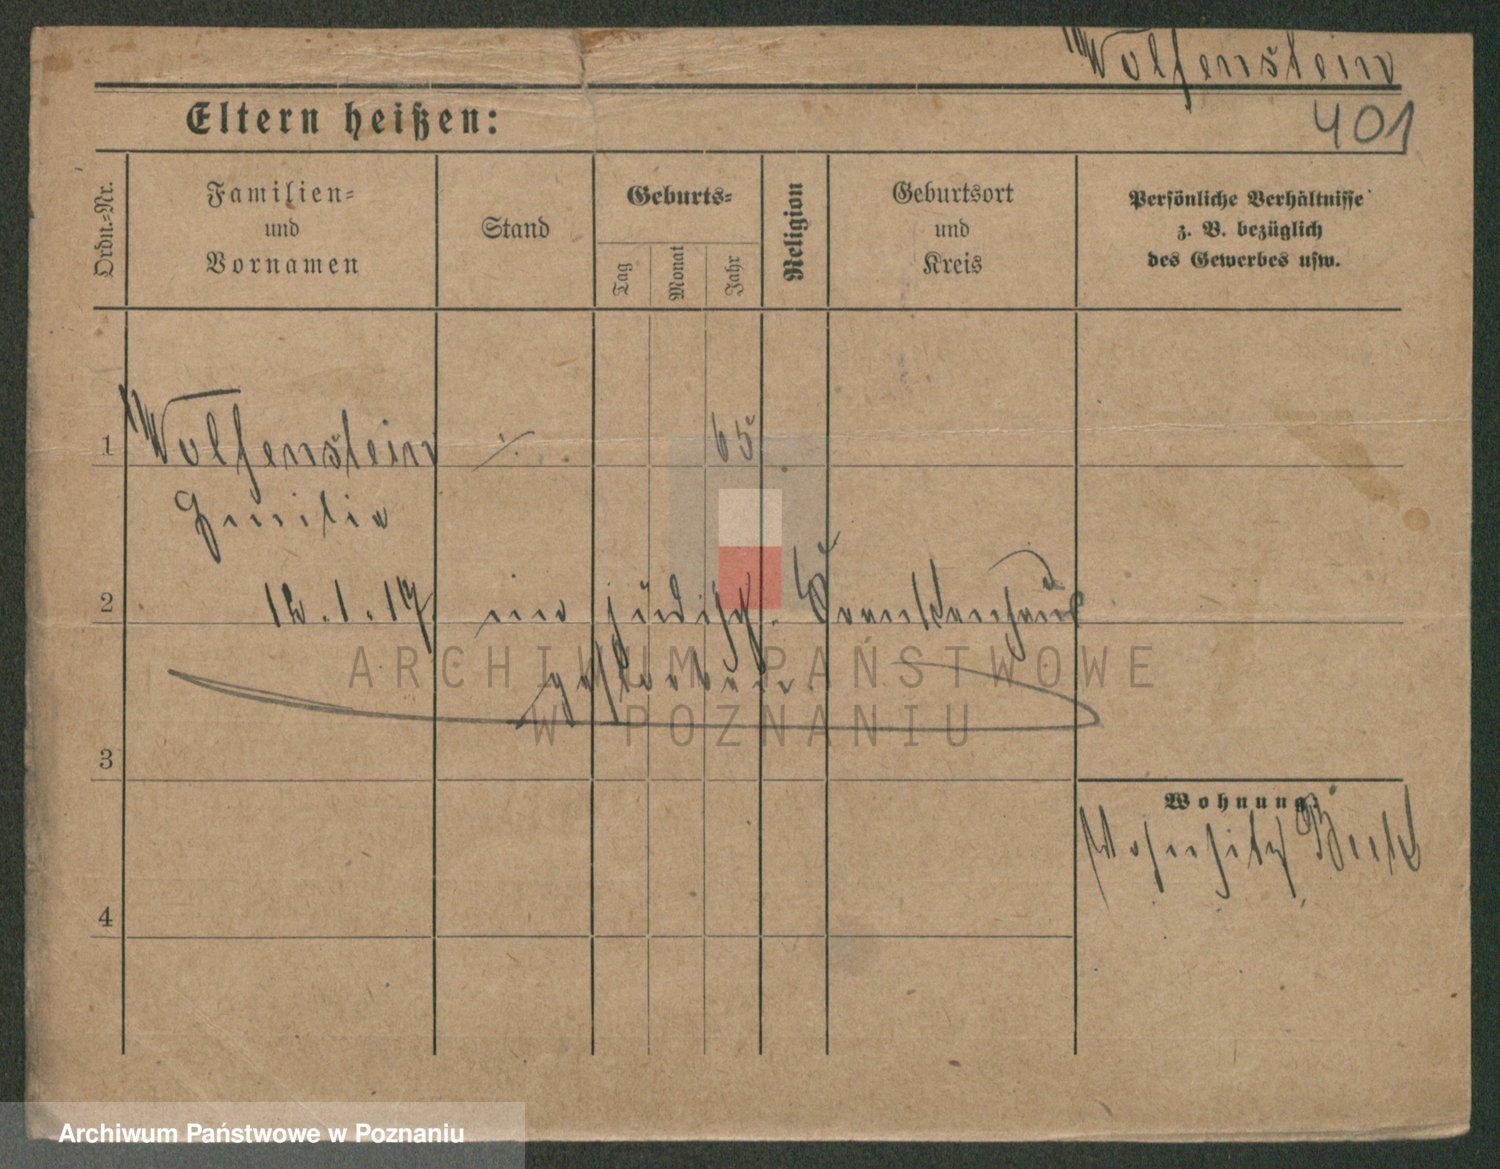 Wolfenstein
401
Eltern heißen:
Ordn.-Nr.
Familien-
und
Vornamen
Stand
Geburts-
Tag
Monat
Jahr
Religion
Geburtsort
und
Kreis
Persönliche Verhältnisse
z. B. bezüglich
des Gewerbes usw.
1 Wolfenstein ./. 65
Emilie
2 12.1.17. im jüdisch. Krankenhaus
gestorben.
ARCHIWUM PAŃSTWOWE
W POZNANIU
3
Wohnung:
Wohnsitz
4
Archiwum Państwowe w Poznaniu